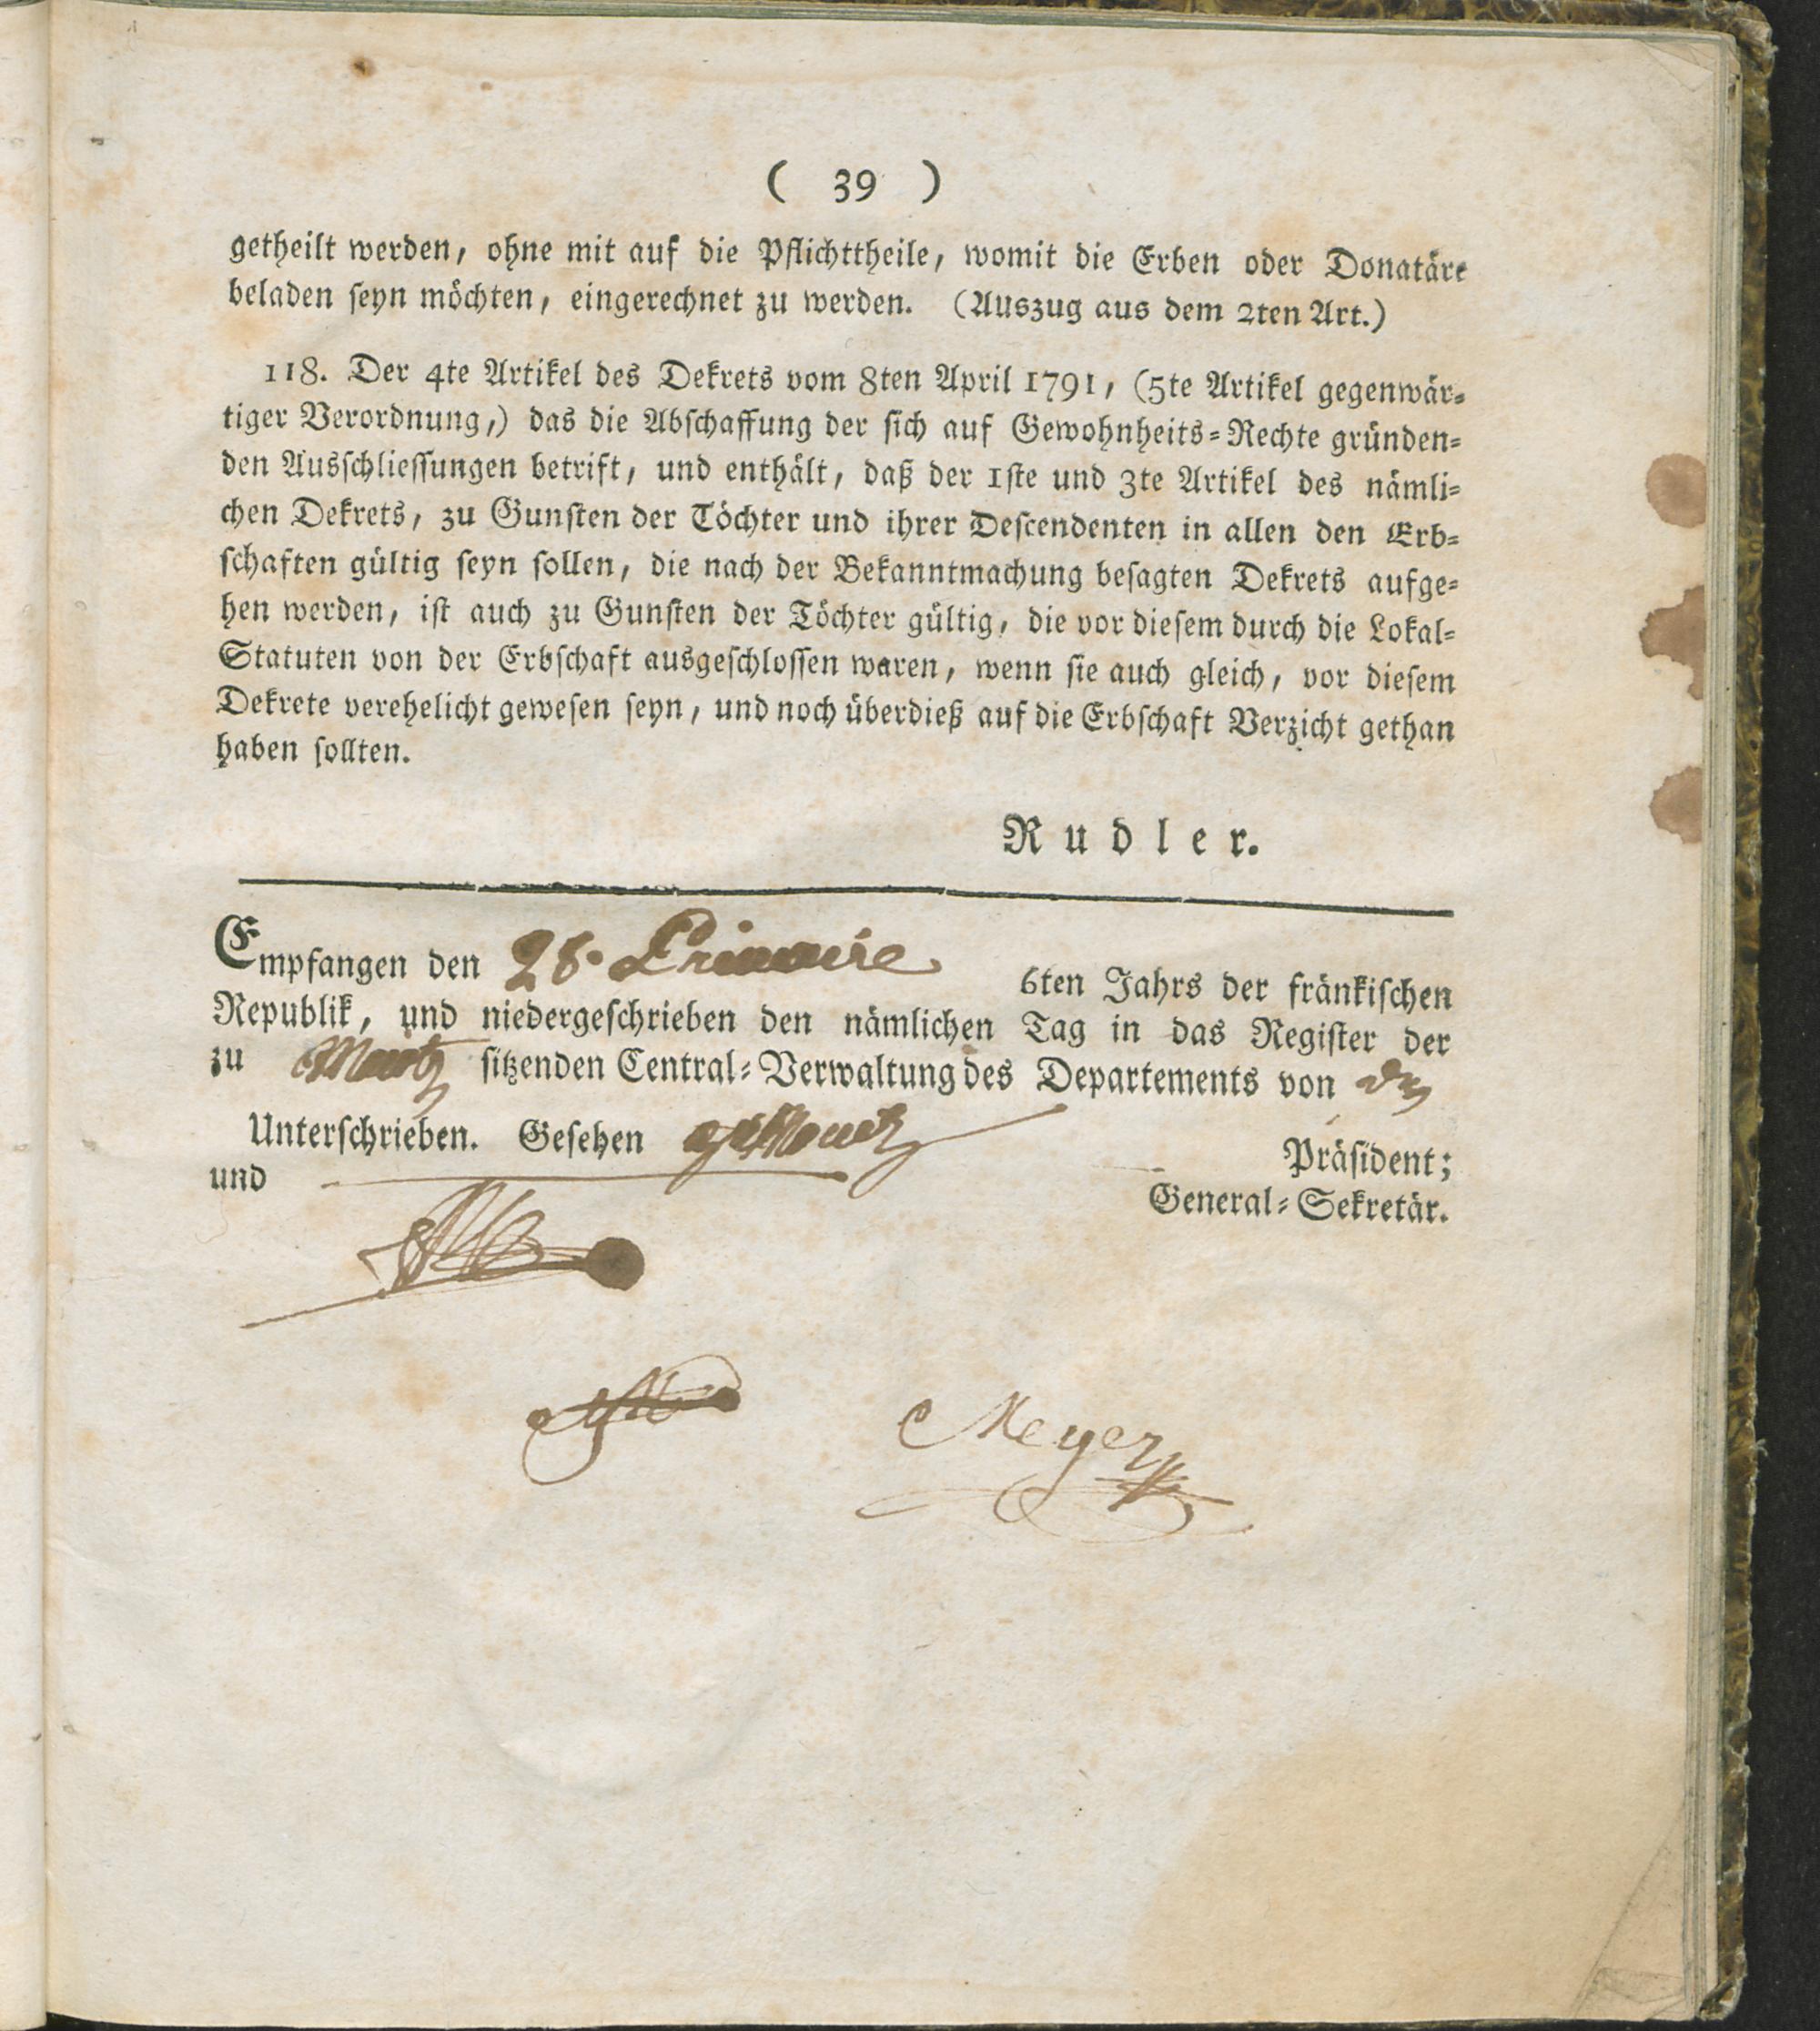 ( 39 )
getheilt werden, ohne mit auf die Pflichttheile, womit die Erben oder Donatäre
beladen seyn möchten, eingerechnet zu werden. (Auszug aus dem 2ten Art.)
118. Der 4te Artikel des Dekrets vom 8ten April 1791, (5te Artikel gegenwär-
tiger Verordnung,) das die Abschaffung der sich auf Gewohnheits-Rechte gründen-
den Ausschliessungen betrift, und enthält, daß der 1ste und 3te Artikel des nämli-
chen Dekrets, zu Gunsten der Töchter und ihrer Descendenten in allen den Erb-
schaften gültig seyn sollen, die nach der Bekanntmachung besagten Dekrets aufge-
hen werden, ist auch zu Gunsten der Töchter gültig, die vor diesem durch die Lokal-
Statuten von der Erbschaft ausgeschlossen waren, wenn sie auch gleich, vor diesem
Dekrete verehelicht gewesen seyn, und noch überdieß auf die Erbschaft Verzicht gethan
haben sollten.
Rudler.
Empfangen den 28. 6ten Jahrs der fränkischen
Republik, und niedergeschrieben den nämlichen Tag in das Register der
zu sitzenden Central-Verwaltung des Departements von
Unterschrieben. Gesehen Präsident;
und General-Sekretär.
Meyer